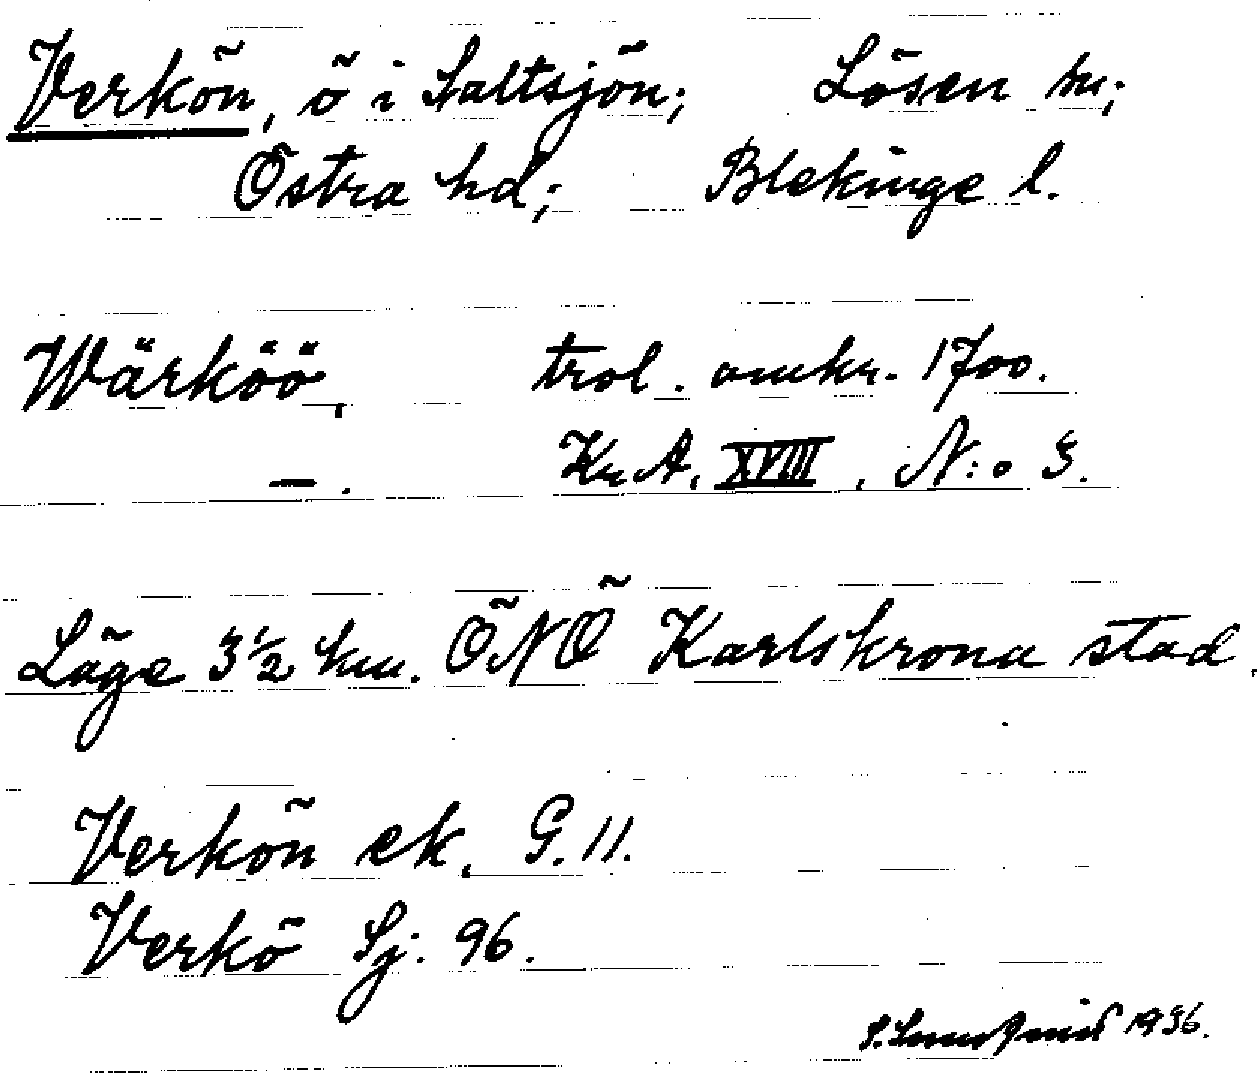 Verkön, ö i Saltsjön; Lösen sn;
Östra hd; Blekinge l.
Wärköö, trol. omkr. 1700.
— . Kr.A. XVIII, N:o 3.
Läge 3½ km. ÖNÖ Karlskrona stad.
Verkön ek. G. 11.
Verkö Sj: 96.
1936.